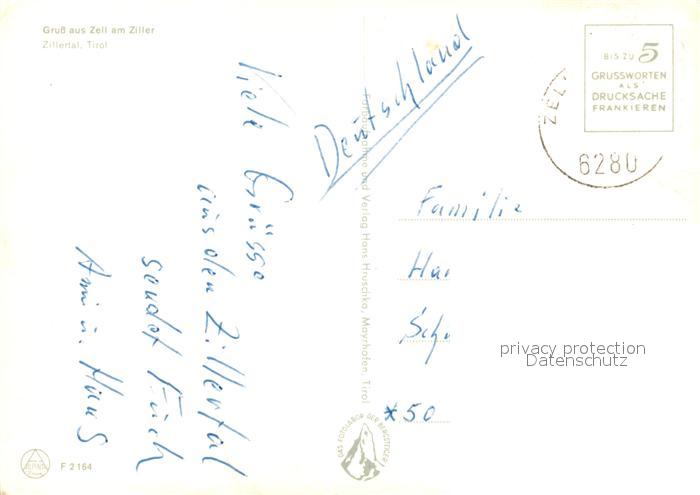 Gruß aus Zell am Ziller
Zillertal, Tirol
Viele Grüsse
aus dem Zillertal
sendet Euch
Ami u. Hans
Deutschland
Fotoaufnahme und Verlag Hans Hruschka, Mayrhofen, Tirol
BIS ZU 5
GRUSSWORTEN
ALS
DRUCKSACHE
FRANKIEREN
ZELL
6280
Familie
Ha
Sch
*50
privacy protection
Datenschutz
DAS FOTOLABOR DER BERGSTEIGER
F 2164